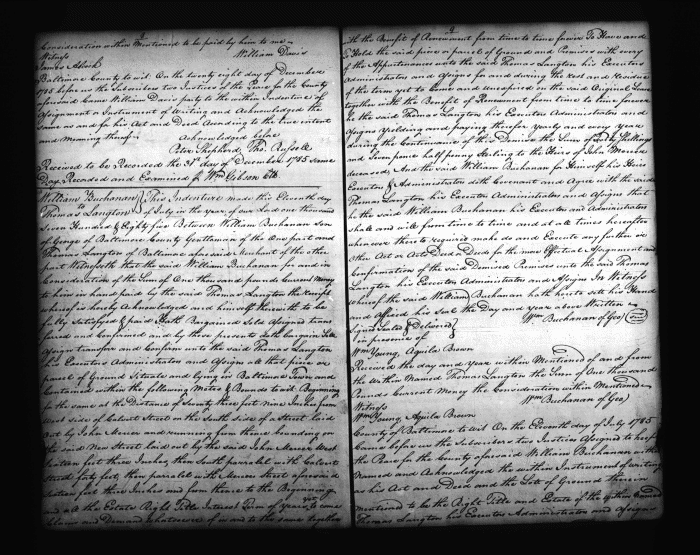 Consideration within Mentioned to be paid by him to me
Witness William Davis
James Alcock
Baltimore County to wit On the twenty eight day of December
1785 before the Subscribers two Justices of the Peace for the County
aforesaid Came William Davis party to the within Indenture of
Assignment or Instrument of Writing and Acknowledged the
same as and for his Act and Deed According to the true intent
and Meaning thereof Acknowledged before
Peter Shepherd, Tho. Russell
Received to be Recorded the 31st day of December 1785 same
Day Recorded and Examined Wm Gibson Clk
William Buchanan This Indenture made this Eleventh day
to
Thomas Langton of July in the year of our Lord one thousand
Seven Hundred & Eighty five Between William Buchanan son
of George of Baltimore County Gentleman of the One part and
Thomas Langton of Baltimore aforesaid Merchant of the other
part Witnesseth that the said William Buchanan for and in
Consideration of the Sum of One thousand pounds Current Money
to him in hand paid by the said Thomas Langton the receipt
whereof is hereby Acknowledged and himself therewith to be
fully Satisfied & paid Hath Bargained Sold Assigned trans
ferred and Confirmed and by these presents doth Bargain Sell
Assign transfer and Confirm unto the said Thomas Langton
his Executors Administrators and Assigns all that piece or
parcel of Ground Situate and lying in Baltimore Town and
Contained within the following Metes & Bounds to wit Beginning
for the same at the Distance of seventy three feet nine Inches from
West side of Calvert Street on the South side of a street laid
out by John Mercer and running from thence bounding on
the said New Street laid out by the said John Mercer West
sixteen feet three Inches, then South parralel with Calvert
street forty feet, then parralel with Mercer Street aforesaid
sixteen feet three Inches and from thence to the Beginning
and all the Estate Right Title Interest Term of years yet to come
Claim and Demand Whatsoever of in and to the same together
4
with the Benefit of Renewment from time to time forever To Have and
To Hold the said piece or parcel of Ground and Premises with every
of the Appurtenances unto the said Thomas Langton his Executors
Administrators and Assigns for and during the rest and Residue
of the term yet to Come and Unexpired in the said Original Lease
together with the Benefit of Renewment from time to time forever
he the said Thomas Langton his Executors Administrators and
Assigns Yielding and paying therefor Yearly and every year
during the Continuance of this Demise the Sum of Shillings
and Seven pence half penny Sterling to the Heirs of John Mercer
deceased, And the said William Buchanan for Himself his Heirs
Executors & Administrators doth Covenant and Agree with the said
Thomas Langton his Executors Administrators and Assigns that
he the said William Buchanan his Executors and Administrators
shall and will from time to time and at all times hereafter
whenever thereto required make do and Execute any further or
other Act or Acts Deed or Deeds for the more Effectual Assignment and
Confirmation of the said Demised Premises unto the said Thomas
Langton his Executors Administrators and Assigns In Witness
whereof the said William Buchanan hath hereto sets his Hand
and Affixed his Seal the Day and Year above Written
Signed Sealed & Delivered Wm Buchanan of Geo
in presence of
Wm Young, Aquila Brown
Received the day and Year within Mentioned of and from
the Within Named Thomas Langton the Sum of One thousand
Pounds Current Money the Consideration within Mentioned
Witness Wm Buchanan of Geo
Wm Young, Aquila Brown
County of Baltimore to wit On the Eleventh day of July 1785
Came before us the Subscribers two Justices Assigned to keep
the Peace for the County aforesaid William Buchanan within
Named and Acknowledged the within Instrument of writing
as his Act and Deed and the Lots of Ground therein
mentioned to be the Right Title and Estate of the within Named
Thomas Langton his Executors Administrators and Assigns